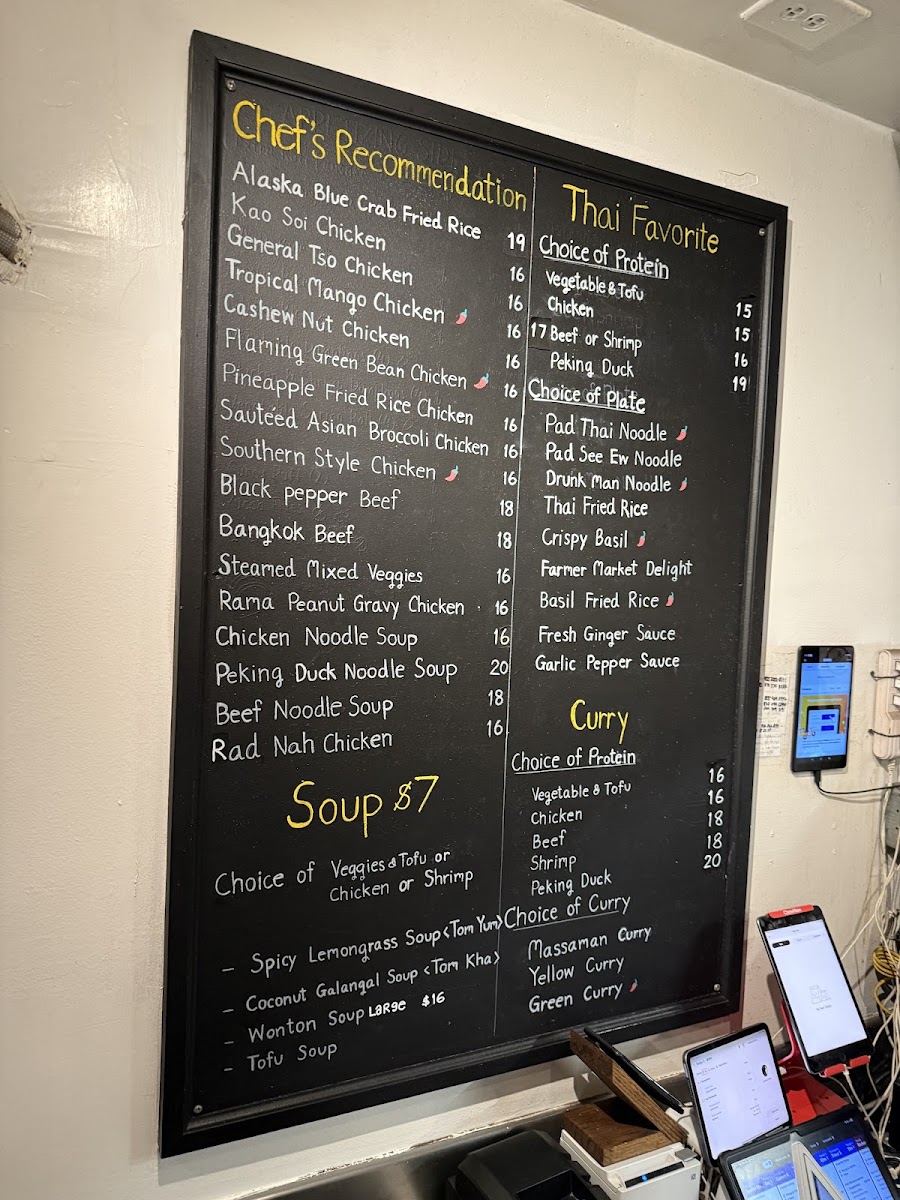 Chef's Recommendation
Alaska Blue Crab Fried Rice 19
Kao Soi Chicken 16
General Tso Chicken 16
Tropical Mango Chicken 16
Cashew Nut Chicken 16
Flaming Green Bean Chicken 16
Pineapple Fried Rice Chicken 16
Sautéed Asian Broccoli Chicken 16
Southern Style Chicken 16
Black pepper Beef 18
Bangkok Beef 18
Steamed Mixed Veggies 16
Rama Peanut Gravy Chicken 16
Chicken Noodle Soup 16
Peking Duck Noodle Soup 20
Beef Noodle Soup 18
Rad Nah Chicken 16
Soup $7
Choice of Veggies & Tofu or
Chicken or Shrimp
- Spicy Lemongrass Soup <Tom Yum>
- Coconut Galangal Soup <Tom Kha>
- Wonton Soup Large $16
- Tofu Soup
Thai Favorite
Choice of Protein
Vegetable & Tofu 15
Chicken 15
17 Beef or Shrimp 16
Peking Duck 19
Choice of Plate
Pad Thai Noodle
Pad See Ew Noodle
Drunk Man Noodle
Thai Fried Rice
Crispy Basil
Farmer Market Delight
Basil Fried Rice
Fresh Ginger Sauce
Garlic Pepper Sauce
Curry
Choice of Protein
Vegetable & Tofu 16
Chicken 16
Beef 18
Shrimp 18
Peking Duck 20
Choice of Curry
Massaman Curry
Yellow Curry
Green Curry